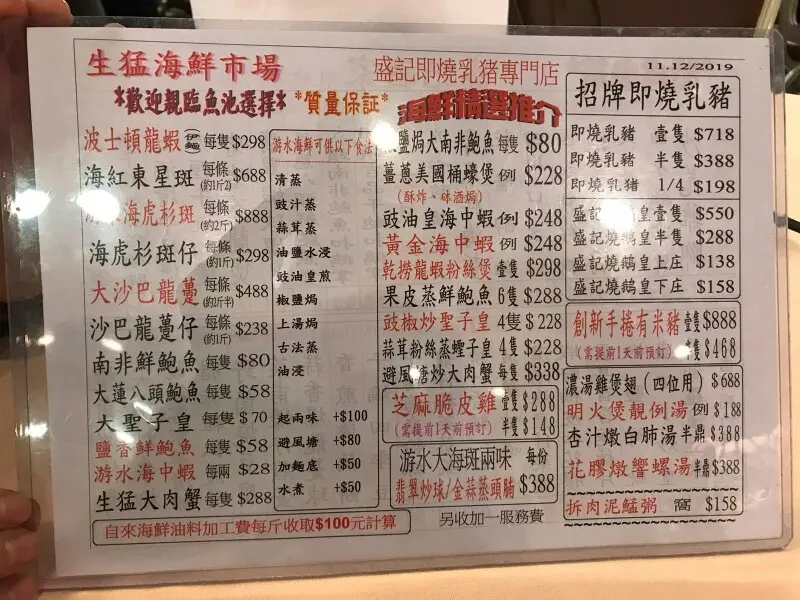 生猛海鮮市場
*歡迎親臨魚池選擇*
*質量保証*
盛記即燒乳猪專門店
11.12/2019
波士頓龍蝦 (伊麵) 每隻 $298
海紅東星斑 每條(約1斤2) $688
海虎杉斑 每條(約2斤) $888
海虎杉斑仔 每條(約1斤) $298
大沙巴龍躉 每條(約2斤半) $488
沙巴龍躉仔 每條(約1斤) $238
南非鮮鮑魚 每隻 $80
大蓮八頭鮑魚 每隻 $58
大聖子皇 每隻 $70
鹽香鮮鮑魚 每隻 $58
游水海中蝦 每兩 $28
生猛大肉蟹 每隻 $288
自來海鮮油料加工費每斤收取$100元計算
游水海鮮可供以下食法
清蒸
豉汁蒸
蒜茸蒸
油鹽水浸
豉油皇煎
椒鹽焗
上湯焗
古法蒸
油浸
起兩味 +$100
避風塘 +$80
加麵底 +$50
水煮 +$50
海鮮精選推介
鹽焗大南非鮑魚 每隻 $80
薑蔥美國桶蠔煲 例 $228
(酥炸、砵酒焗)
豉油皇海中蝦 例 $248
黃金海中蝦 例 $248
乾撈龍蝦粉絲煲 壹隻 $298
果皮蒸鮮鮑魚 6隻 $288
豉椒炒聖子皇 4隻 $228
蒜茸粉絲蒸蟶子皇 4隻 $228
避風塘炒大肉蟹 每隻 $338
芝麻脆皮雞 壹隻 $288
(需提前1天前預訂) 半隻 $148
游水大海斑兩味 每份
翡翠炒球/金蒜蒸頭腩 $388
另收加一服務費
招牌即燒乳豬
即燒乳豬 壹隻 $718
即燒乳豬 半隻 $388
即燒乳豬 1/4 $198
盛記燒鵝皇壹隻 $550
盛記燒鵝皇半隻 $288
盛記燒鵝皇上庄 $138
盛記燒鵝皇下庄 $158
創新手捲有米豬 壹隻 $888
(需提前1天前預訂) 半隻 $468
濃湯雞煲翅(四位用) $688
明火煲靚例湯 例 $188
杏汁燉白肺湯 半鼎 $388
花膠燉響螺湯 半鼎 $388
拆肉泥鯭粥 窩 $158